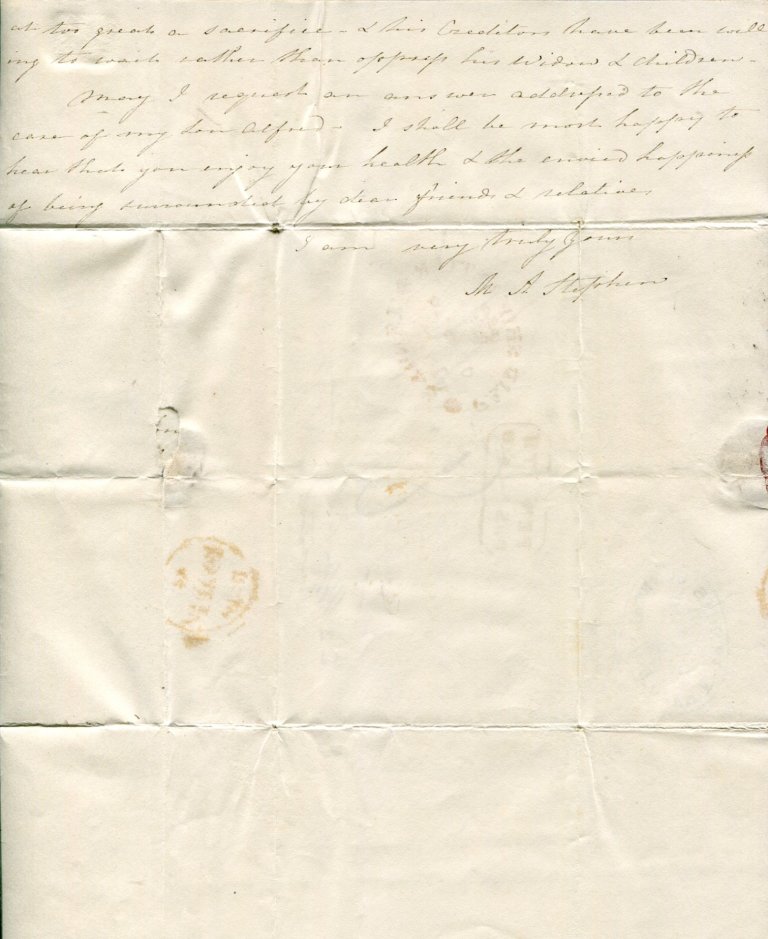 at too great a sacrifice - & his Creditors have been will
ing to wait rather than oppress his Widow & children -
May I request an answer addressed to the
care of my Son Alfred - I shall be most happy to
hear that you enjoy your health & the envied happiness
of being surrounded by dear friends & relatives
I am very truly yours
M A Stephen